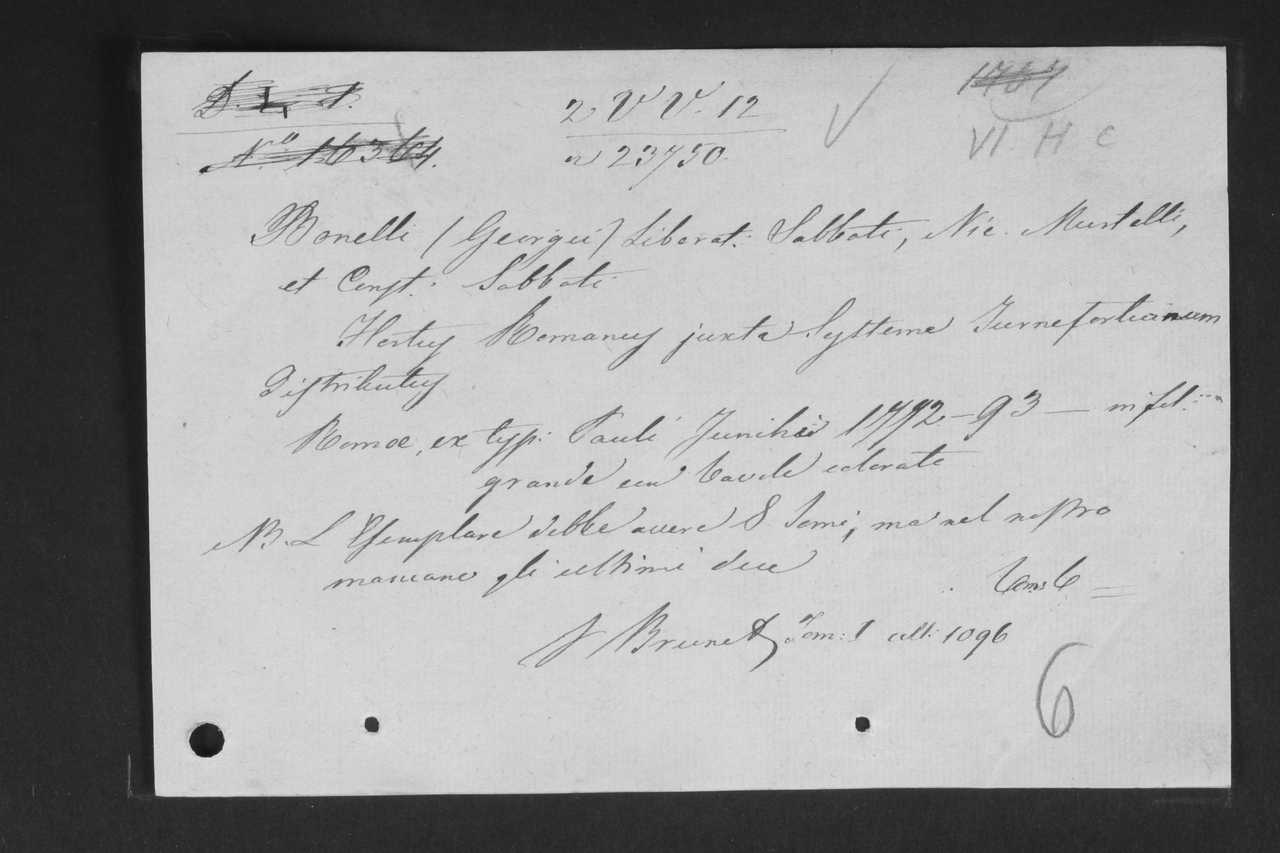 N.º 16364.
2 V V. 12
n 23750
VI H c
Bonelli (Georgii) Liberat: Sabbati, Nic. Martelli,
et Const: Sabbati
Hortus Romanus juxta Systema Turnefortianum
Distributus
Romae, ex typ: Pauli Junchi 1772-93 — in fol:
grande con tavole colorate
NB. L'Esemplare debbe avere 8 Tomi, ma nel nostro
mancano gli ultimi due
Tom: 6 =
V Brunet Tom: 1 coll: 1096
6